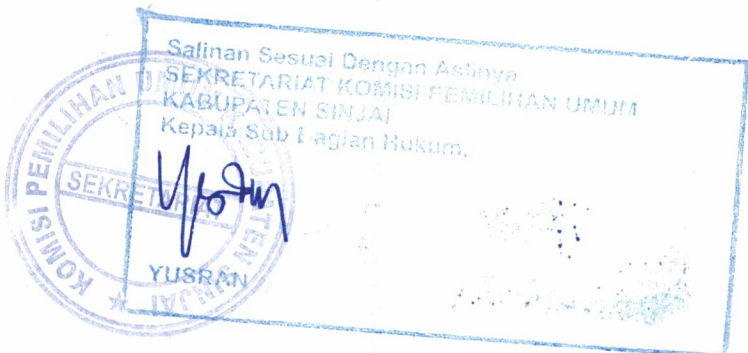 Salinan Sesuai Dengan Aslinya
SEKRETARIAT KOMISI PEMILIHAN UMUM
KABUPATEN SINJAI
Kepala Sub Bagian Hukum,
YUSRAN
KOMISI PEMILIHAN UMUM KABUPATEN SINJAI
SEKRETARIAT